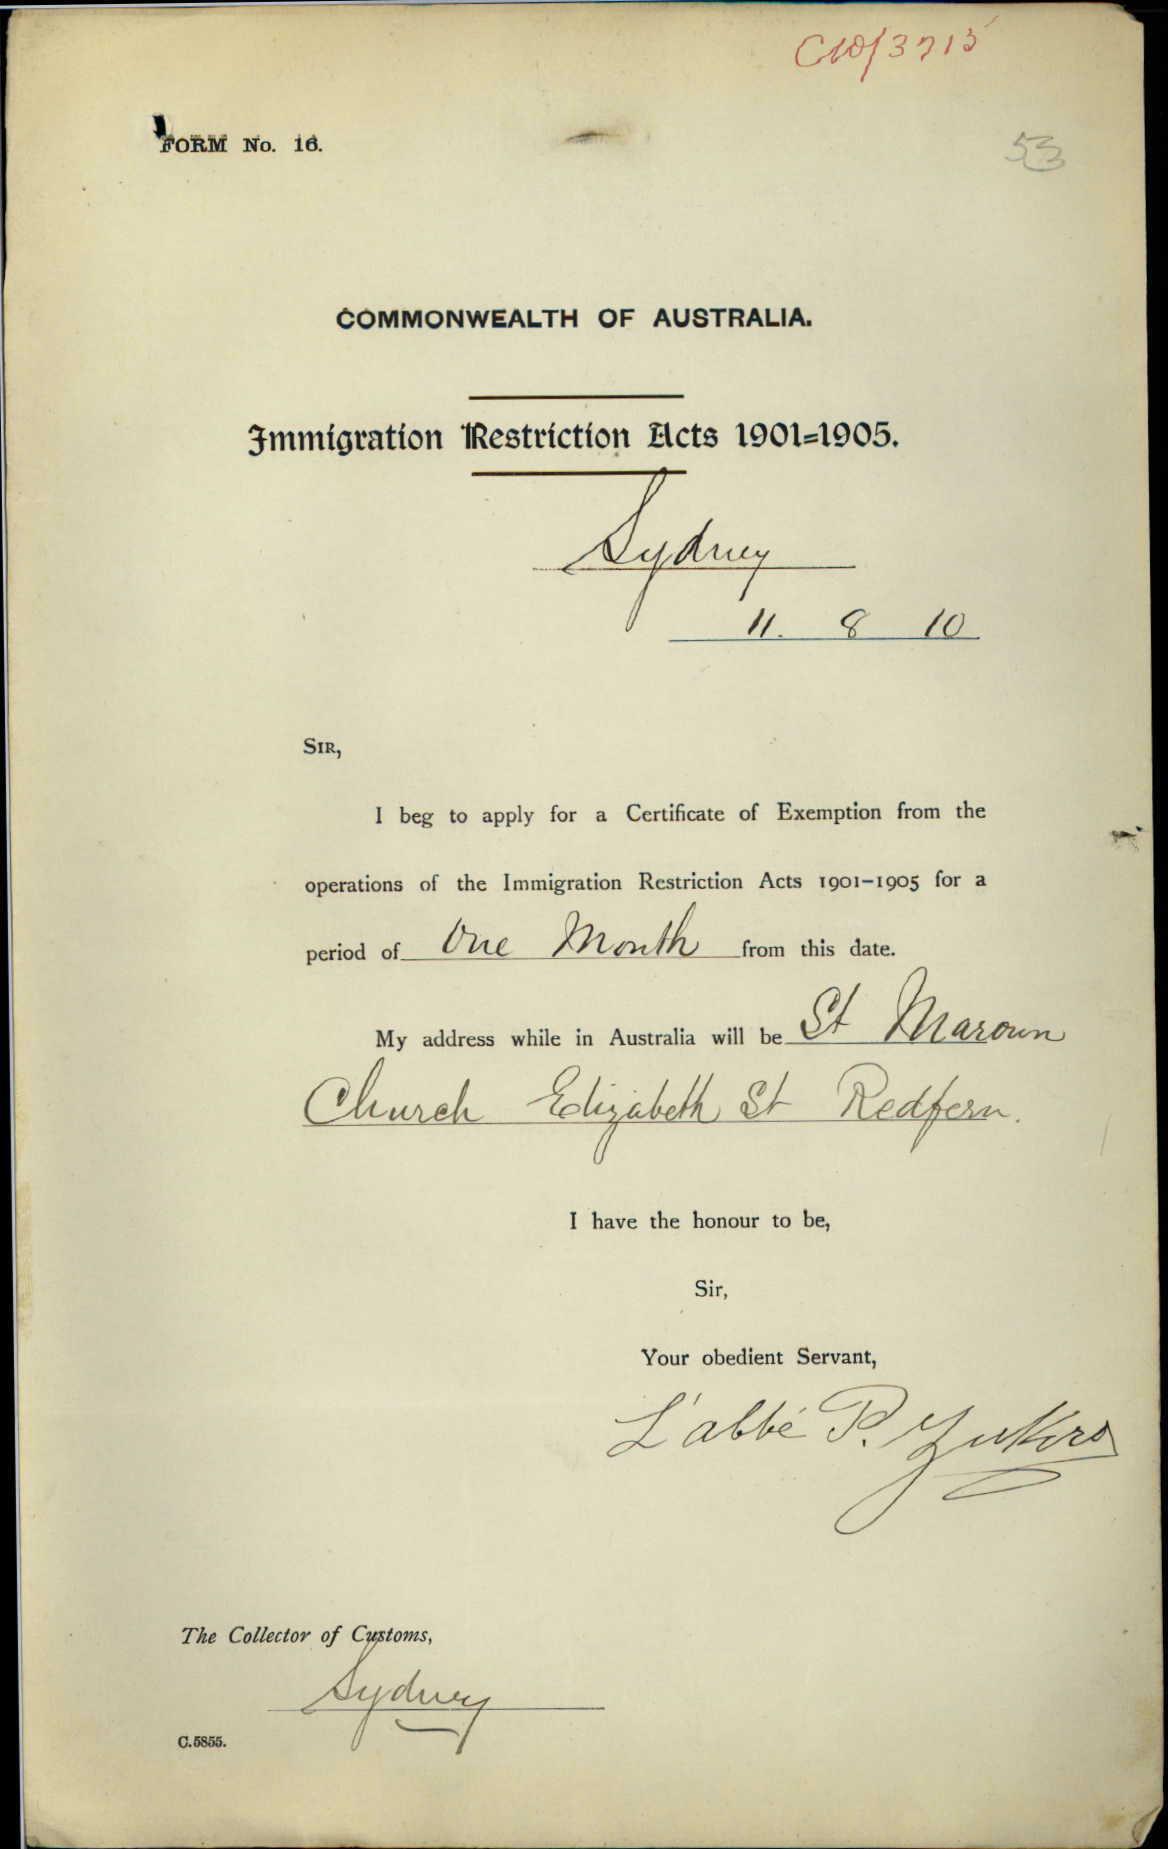 C10/3715
FORM No. 16.
53
COMMONWEALTH OF AUSTRALIA.
Immigration Restriction Acts 1901=1905.
Sydney
11. 8 10
SIR,
I beg to apply for a Certificate of Exemption from the
operations of the Immigration Restriction Acts 1901-1905 for a
period of One Month from this date.
My address while in Australia will be St Maroun
Church Elizabeth St Redfern.
I have the honour to be,
Sir,
Your obedient Servant,
L'abbé P.
The Collector of Customs,
Sydney
C.5855.